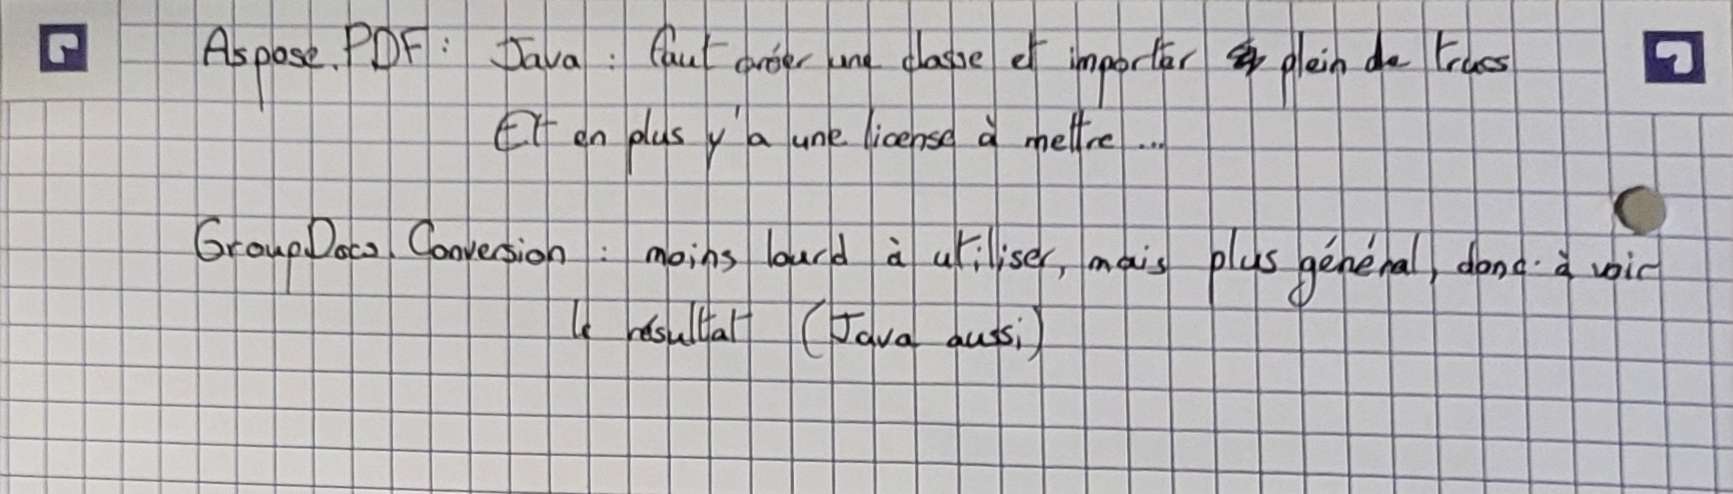 Aspose.PDF : Java : faut créer une classe et importer plein de trucs
Et en plus y'a une license à mettre...
GroupDocs.Conversion : moins lourd à utiliser, mais plus général, donc à voir
le résultat (Java aussi)